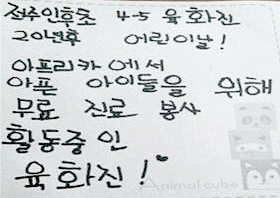 전주인후초 4-5 육화진
20년후 어린이날!
아프리카에서
아픈 아이들을 위해
무료 진료 봉사
활동중인
육화진!
Animal cube